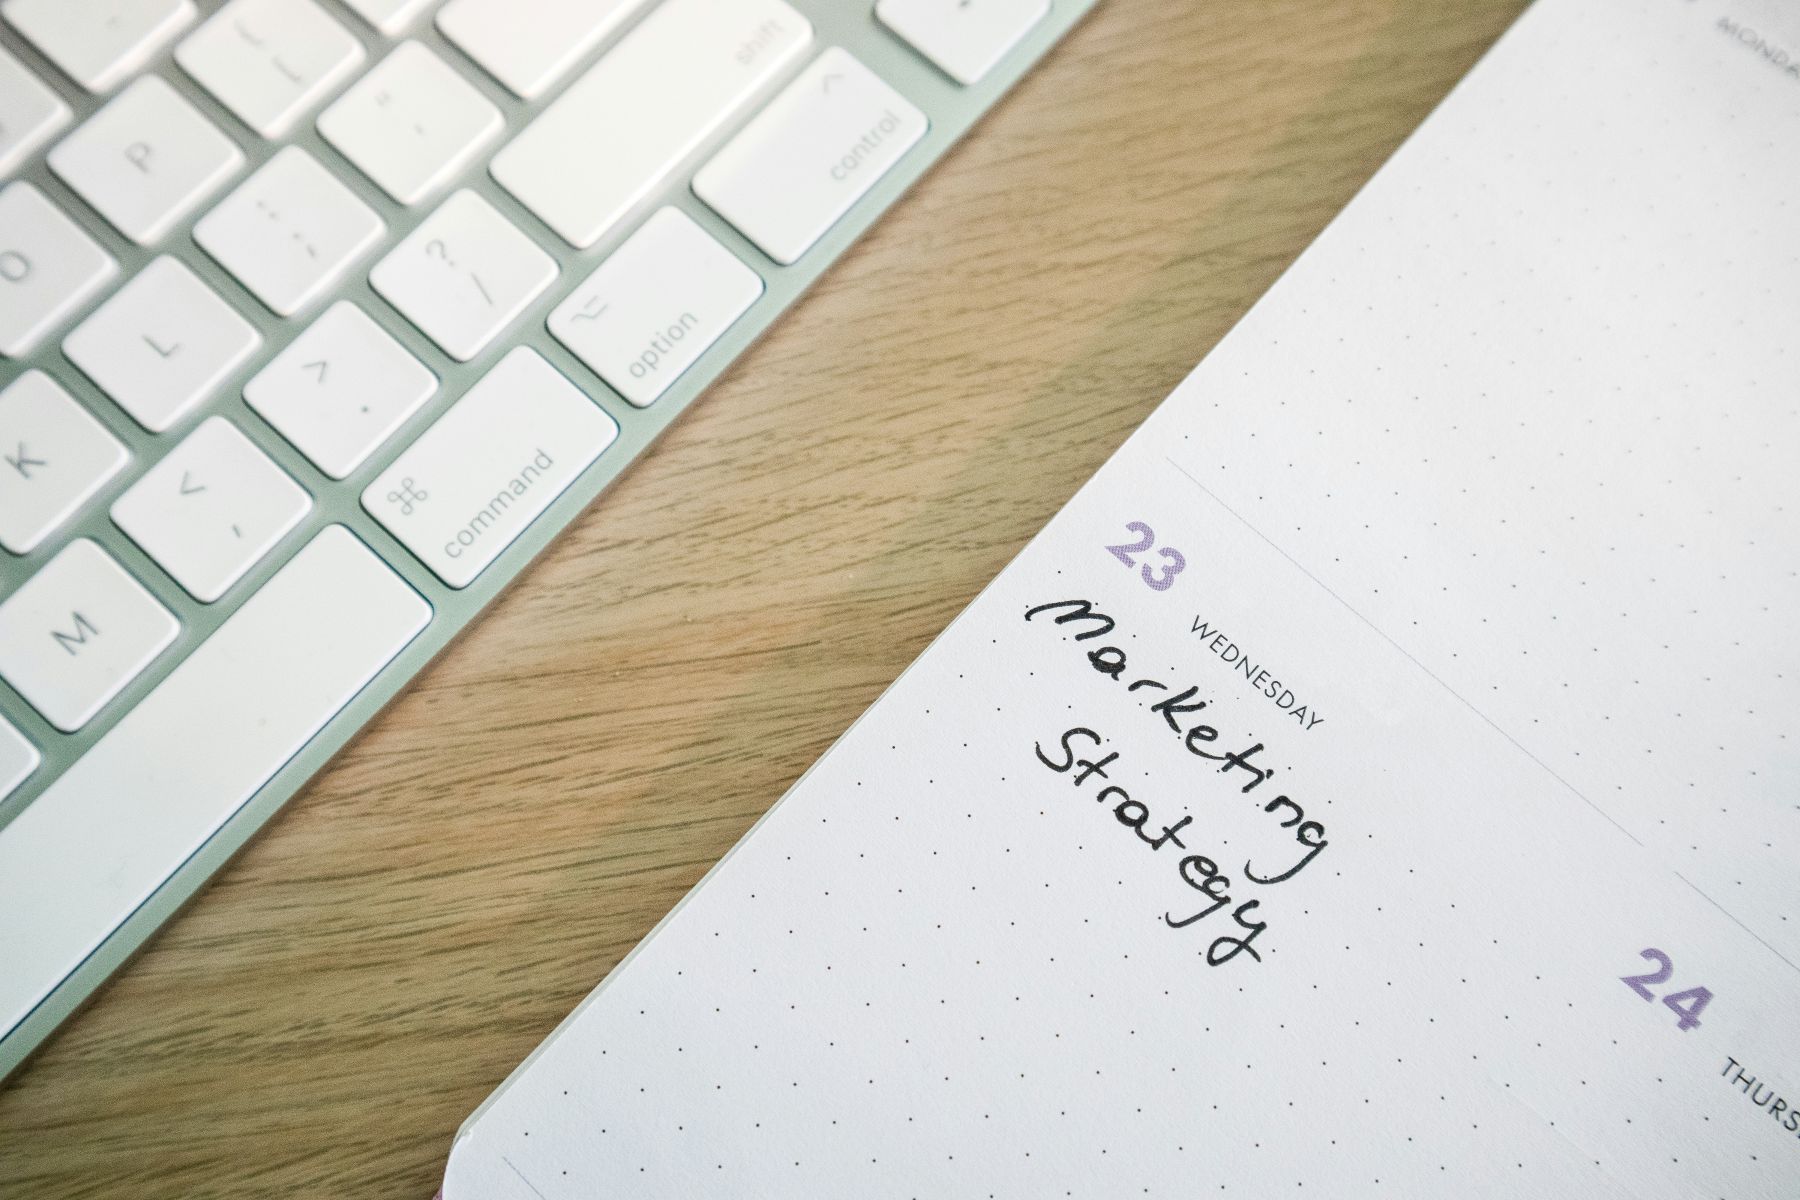 shift
^
control
P
" '
: ;
? /
⌥
option
O
L
> .
⌘
command
K
< ,
M
23
WEDNESDAY
Marketing
Strategy
24